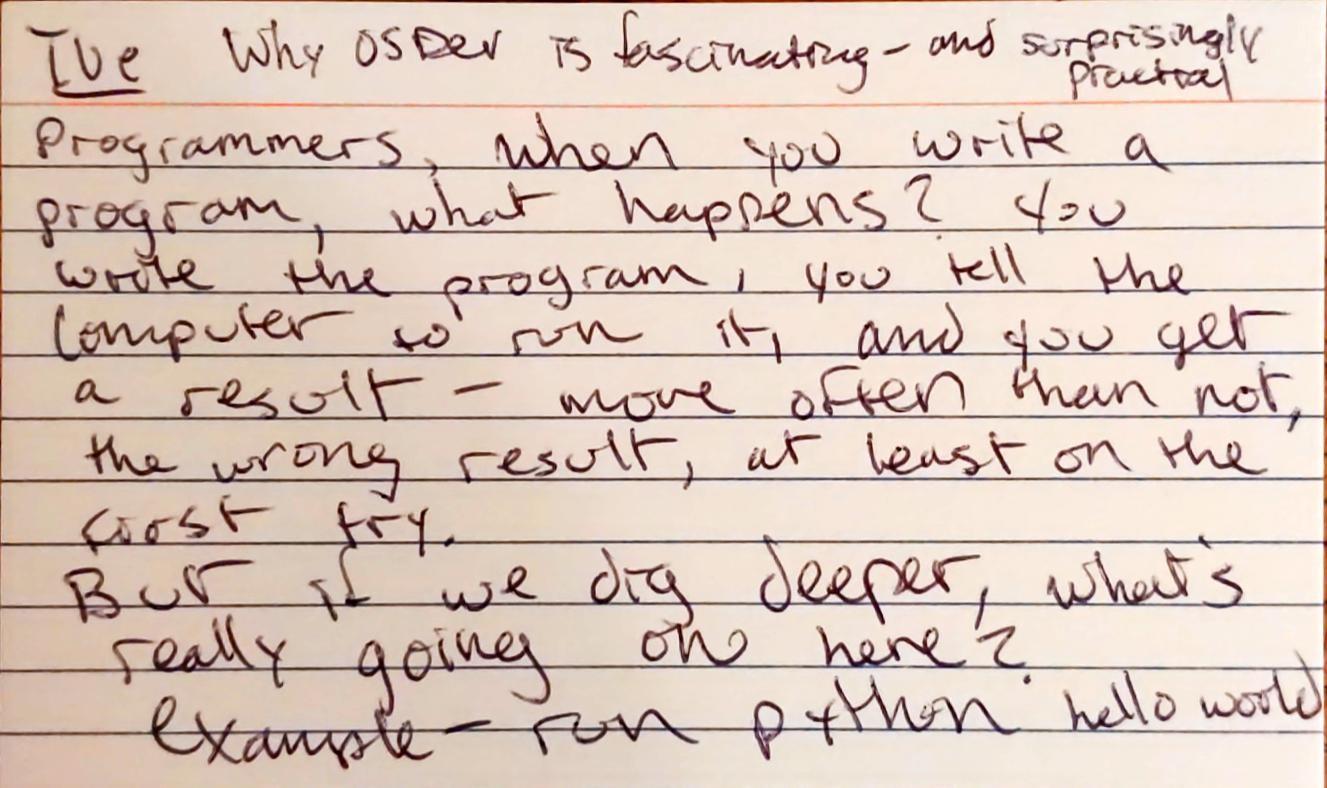 IVe Why OSDev is fascinating - and surprisingly practical
Programmers, when you write a
program, what happens? You
write the program, you tell the
Computer to run it, and you get
a result - more often than not,
the wrong result, at least on the
first try.
But if we dig deeper, what's
really going on here?
example - run python hello world